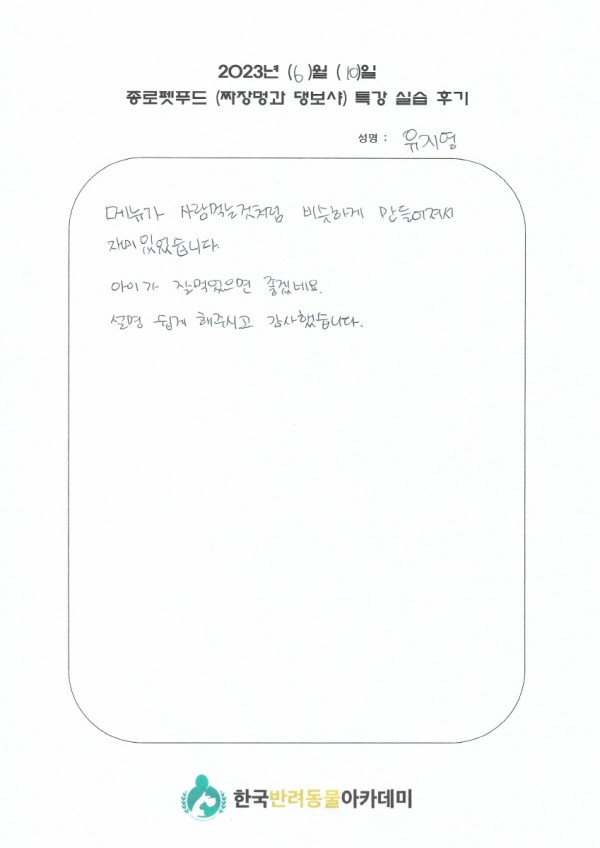 2023년 (6)월 (10)일
종로펫푸드 (짜장멍과 댕보샤) 특강 실습 후기
성명 : 유지영
메뉴가 사람먹는것처럼 비슷하게 만들어져서
재미있었습니다.
아이가 잘먹었으면 좋겠네요.
설명 쉽게 해주시고 감사했습니다.
한국반려동물아카데미